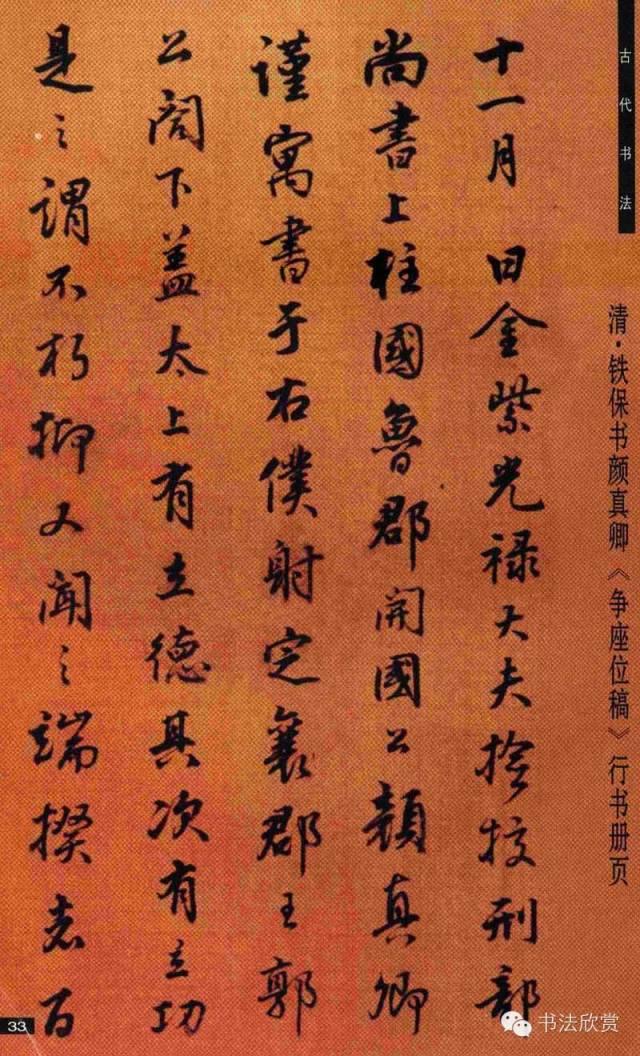 古代书法
清·铁保书颜真卿《争座位稿》行书册页
十一月 日金紫光禄大夫捡挍刑部
尚書上柱國魯郡開國公顏真卿
謹寓書于右僕射定襄郡王郭
公閤下盖太上有立德其次有立功
是之謂不朽抑又聞之端揆者百
33
书法欣赏